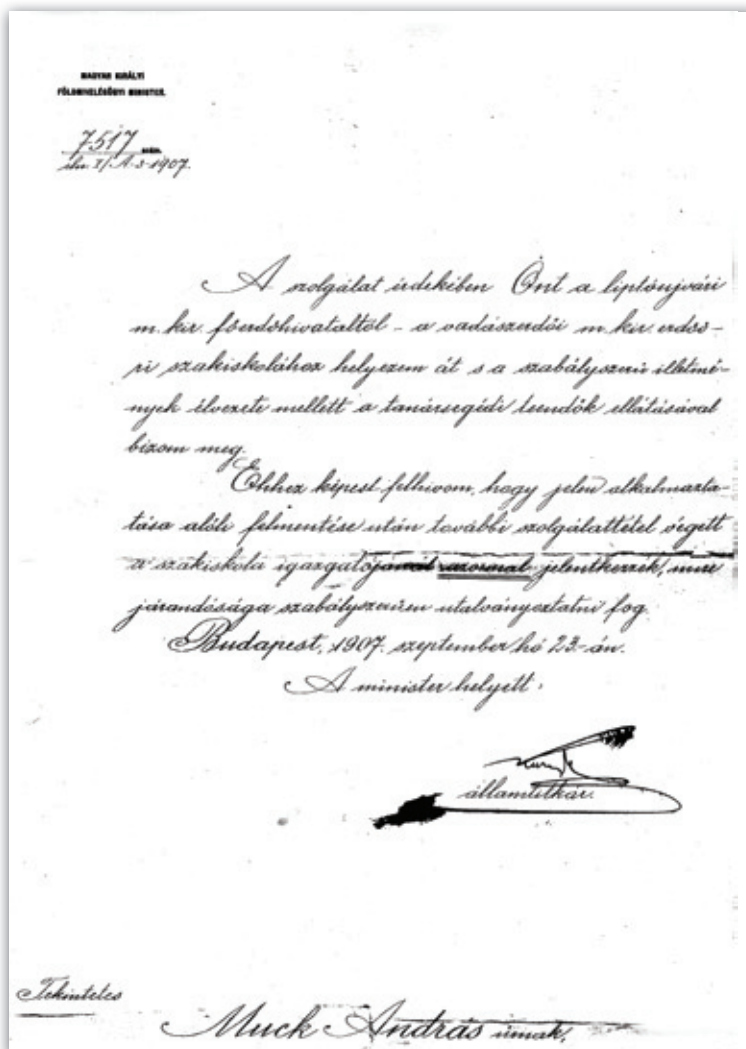 MAGYAR KIRÁLYI
FÖLDMIVELÉSÜGYI MINISTER.
7517 szám.
eln. I/A-3-1907.
A szolgálat érdekében Önt a liptóujvári
m. kir. főerdőhivataltól - a vadászerdői m. kir. erdőő-
ri szakiskolához helyezem át s a szabályszerü illetmé-
nyek élvezete mellett a tanársegédi teendők ellátásával
bizom meg.
Ehhez képest felhivom, hogy jelen alkalmazta-
tása alóli felmentése után további szolgálattétel végett
a szakiskola igazgatójánál azonnal jelentkezzék, mire
járandósága szabályszerüen utalványoztatni fog.
Budapest, 1907. szeptember hó 23-án.
A minister helyett:
államtitkár.
Tekintetes
Muck András úrnak,